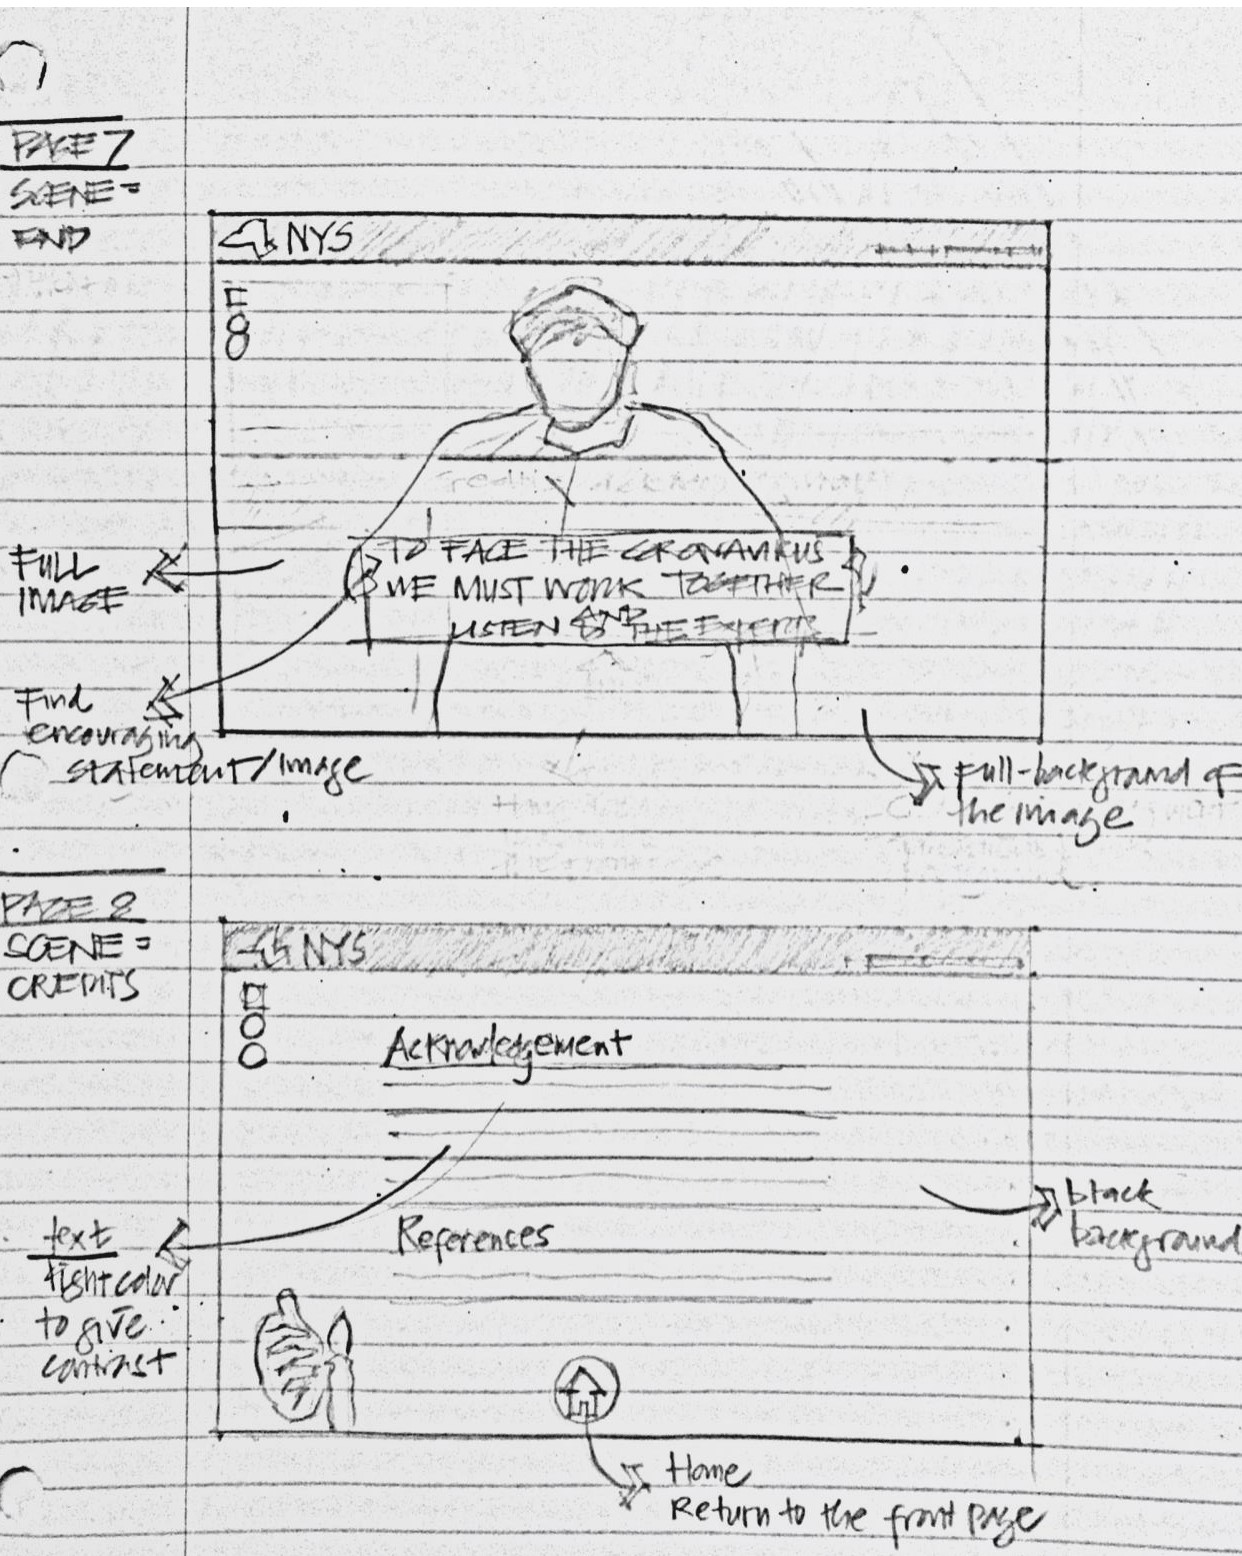 PAGE 7
SCENE =
END
NYS
TO FACE THE CORONAVIRUS
WE MUST WORK TOGETHER
AND
LISTEN TO THE EXPERTS
FULL
IMAGE
Find
encouraging
statement/image
Full-background of
the image
PAGE 8
SCENE =
CREDITS
NYS
Acknowledgement
References
text
light color
to give
contrast
black
background
Home
Return to the front page